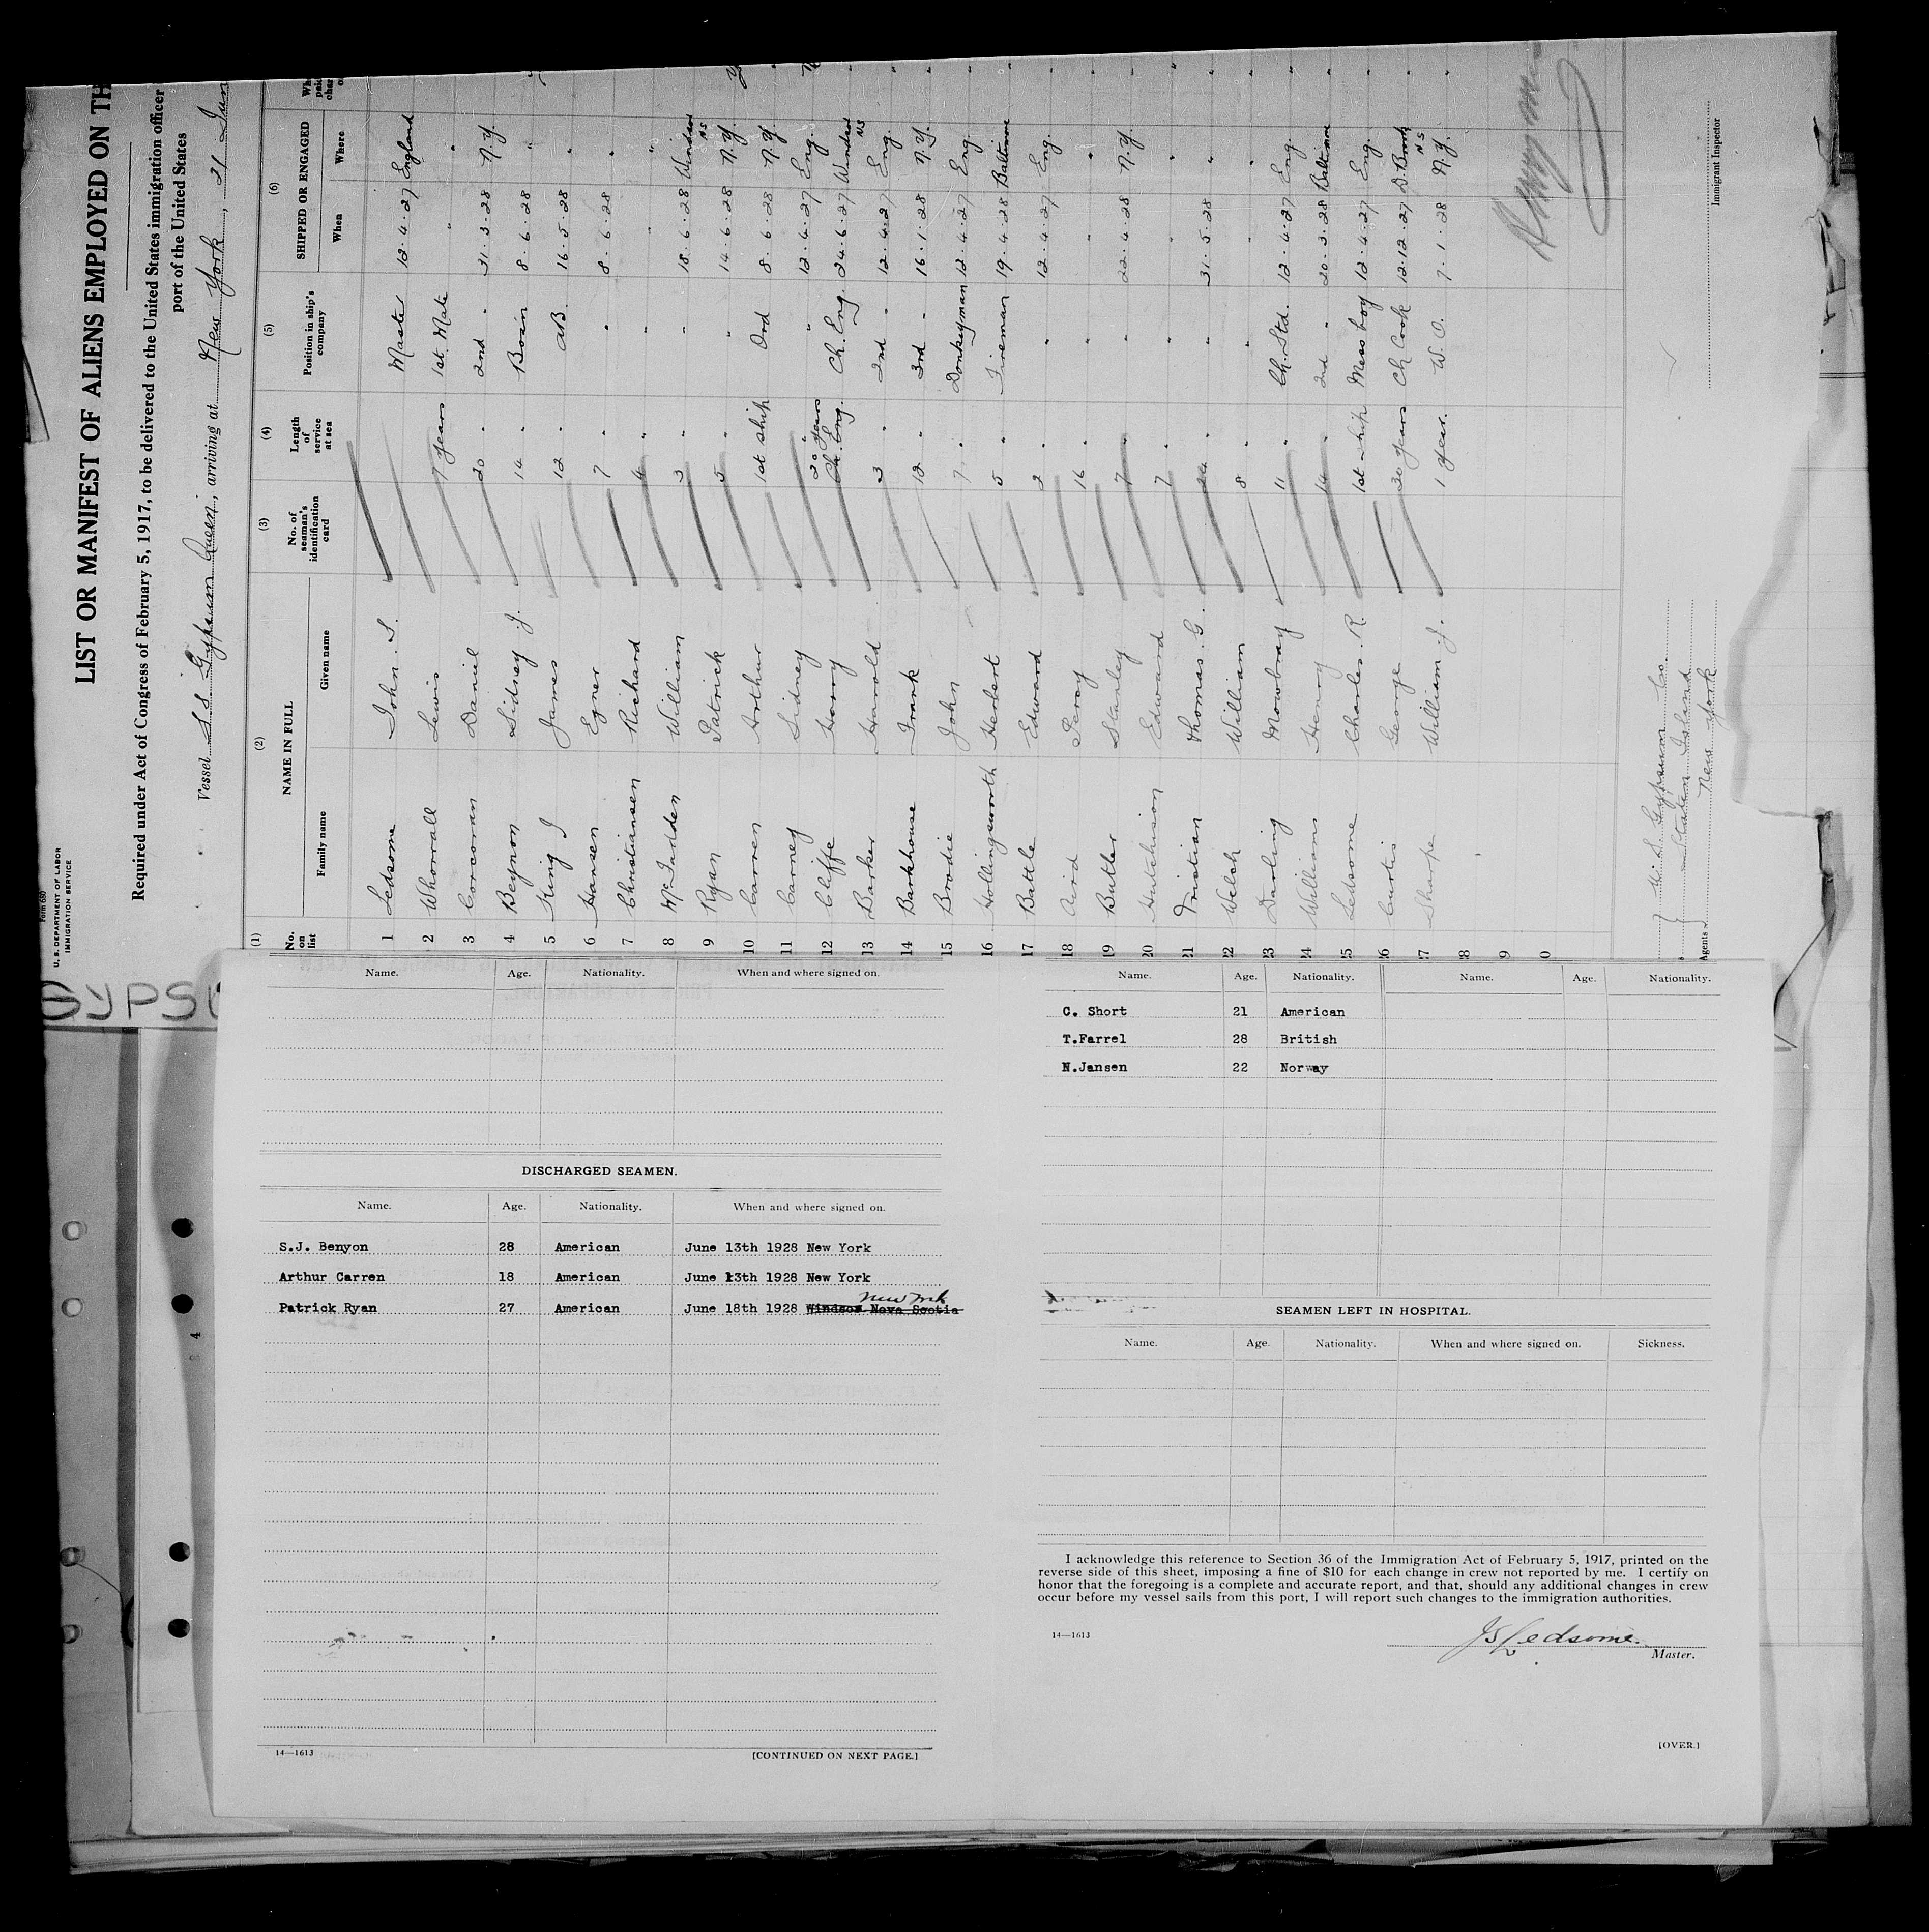 Form 680
U. S. DEPARTMENT OF LABOR
IMMIGRATION SERVICE
LIST OR MANIFEST OF ALIENS EMPLOYED ON TH
Required under Act of Congress of February 5, 1917, to be delivered to the United States immigration officer
port of the United States
Vessel SS Gypsum Queen, arriving at New York, 21 Jun
(1) (2) (3) (4) (5) (6)
No. on list NAME IN FULL No. of seaman's identification card Length of service at sea Position in ship's company SHIPPED OR ENGAGED
Family name Given name When Where
1 Ledsome John S. Master 12.4.27 England
2 Whorrall Lewis 7 years 1st Mate " "
3 Corcoran Daniel 20 " 2nd " 31.3.28 N.Y.
4 Beynon Sidney J. 14 " Bosin 8.6.28 "
5 King J James 12 " AB. 16.5.28 "
6 Hansen Egner 7 " " 8.6.28 "
7 Christiansen Richard 4 " " "
8 McFadden William 3 " " 18.6.28 Windsor NS
9 Ryan Patrick 5 " " 14.6.28 N.Y.
10 Carren Arthur 1st ship Ord 8.6.28 N.Y.
11 Carney Sidney " 12.4.27 Eng.
12 Cliffe Harry 20 years Ch. Eng. 24.6.27 Windsor NS
13 Barker Harold 3 " 2nd " 12.4.27 Eng
14 Barkhouse Frank 12 " 3rd " 16.1.28 N.Y.
15 Brodie John 7 " Donkeyman 12.4.27 Eng
16 Hollingsworth Herbert 5 " Fireman 19.4.28 Baltimore
17 Battle Edward 2 " " 12.4.27 Eng.
18 Aird Percy 16 " " " "
19 Butler Stanley 7 " " 22.4.28 N.Y.
20 Hutchison Edward 7 " " " "
21 Tristian Thomas. G. 24 " " 31.5.28 "
22 Welsh William 8 " " "
23 Darling Mowbray 11 " Ch. Std. 12.4.27 Eng.
24 Williams Henry 14 " 2nd " 20.3.28 Baltimore
25 Ledsome Charles. R. 1st ship Mess boy 12.4.27 Eng.
26 Curtis George 30 years Ch Cook 12.12.27
27 Sharpe William J. 1 year. W. O. 7.1.28 N.Y.
28
9
0
Agents U. S. Gypsum Co.
Staten Island
New York
Immigrant Inspector
GYPSU
Name. Age. Nationality. When and where signed on.
DISCHARGED SEAMEN.
Name. Age. Nationality. When and where signed on.
S.J. Benyon 28 American June 13th 1928 New York
Arthur Carren 18 American June 13th 1928 New York
New York
Patrick Ryan 27 American June 18th 1928 Windsor Nova Scotia
4
14—1613 [CONTINUED ON NEXT PAGE.]
Name. Age. Nationality. Name. Age. Nationality.
C. Short 21 American
T.Farrel 28 British
N.Jansen 22 Norway
SEAMEN LEFT IN HOSPITAL.
Name. Age. Nationality. When and where signed on. Sickness.
I acknowledge this reference to Section 36 of the Immigration Act of February 5, 1917, printed on the
reverse side of this sheet, imposing a fine of $10 for each change in crew not reported by me. I certify on
honor that the foregoing is a complete and accurate report, and that, should any additional changes in crew
occur before my vessel sails from this port, I will report such changes to the immigration authorities.
14—1613 J S Ledsome.
Master.
[OVER.]